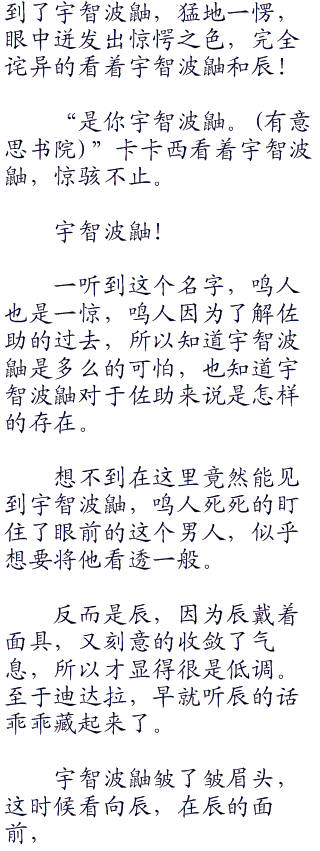 到了宇智波鼬，猛地一愣，
眼中迸发出惊愕之色，完全
诧异的看着宇智波鼬和辰！
“是你宇智波鼬。(有意
思书院)”卡卡西看着宇智波
鼬，惊骇不止。
宇智波鼬！
一听到这个名字，鸣人
也是一惊，鸣人因为了解佐
助的过去，所以知道宇智波
鼬是多么的可怕，也知道宇
智波鼬对于佐助来说是怎样
的存在。
想不到在这里竟然能见
到宇智波鼬，鸣人死死的盯
住了眼前的这个男人，似乎
想要将他看透一般。
反而是辰，因为辰戴着
面具，又刻意的收敛了气
息，所以才显得很是低调。
至于迪达拉，早就听辰的话
乖乖藏起来了。
宇智波鼬皱了皱眉头，
这时候看向辰，在辰的面
前，